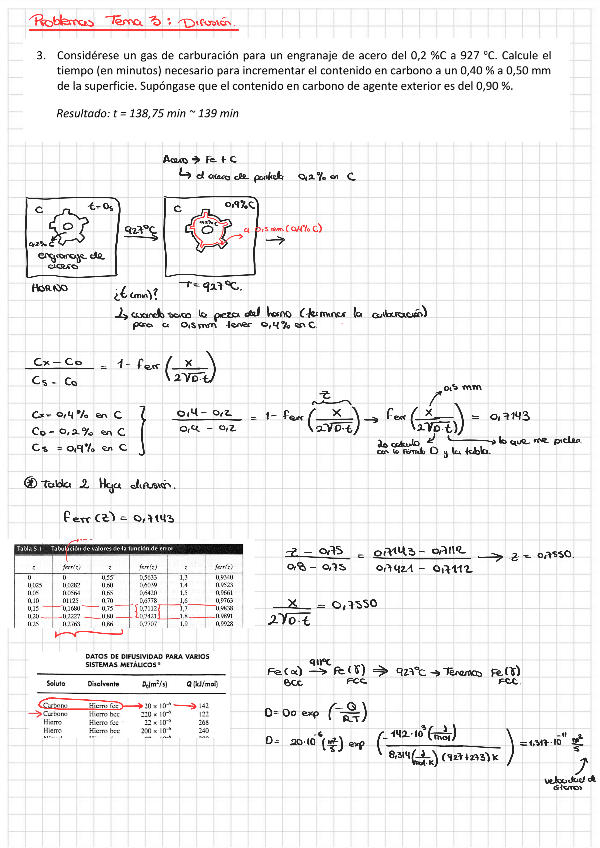 Problemas Tema 3: Difusión.
3. Considérese un gas de carburación para un engranaje de acero del 0,2 %C a 927 °C. Calcule el
tiempo (en minutos) necesario para incrementar el contenido en carbono a un 0,40 % a 0,50 mm
de la superficie. Supóngase que el contenido en carbono de agente exterior es del 0,90 %.
Resultado: t = 138,75 min ~ 139 min
Acero → Fe + C
↳ el acero de partida 0,2% en C
C t=0s
0,2% C
engranaje de
acero
HORNO
927°C
C 0,9%C
a 0,5mm (0,4% C)
T = 927°C.
¿t (min)?
↳ cuando saco la pieza del horno (terminar la carburación)
para a 0,5mm tener 0,4% en C.
Cx - Co / Cs - Co = 1 - ferr (x / 2√D·t)
Cx = 0,4% en C
Co = 0,2% en C
Cs = 0,9% en C
0,4 - 0,2 / 0,9 - 0,2 = 1 - ferr (x / 2√D·t) → ferr (x / 2√D·t) = 0,7143
z
0,5 mm
lo calculo con la fórmula D y la tabla.
lo que me piden
Tabla 2 Hoja difusión.
ferr (z) = 0,7143
Tabla 5.1 Tabulación de valores de la función de error
z ferr(z) z ferr(z) z ferr(z)
0 0 0,55 0,5633 1,3 0,9340
0,025 0,0282 0,60 0,6039 1,4 0,9523
0,05 0,0564 0,65 0,6420 1,5 0,9661
0,10 0,1125 0,70 0,6778 1,6 0,9763
0,15 0,1680 0,75 0,7112 1,7 0,9838
0,20 0,2227 0,80 0,7421 1,8 0,9891
0,25 0,2763 0,85 0,7707 1,9 0,9928
z - 0,75 / 0,8 - 0,75 = 0,7143 - 0,7112 / 0,7421 - 0,7112 → z = 0,7550
x / 2√D·t = 0,7550
DATOS DE DIFUSIVIDAD PARA VARIOS
SISTEMAS METÁLICOS
Soluto Disolvente D₀(m²/s) Q (kJ/mol)
Carbono Hierro fcc 20 × 10⁻⁶ 142
Carbono Hierro bcc 220 × 10⁻⁶ 122
Hierro Hierro fcc 22 × 10⁻⁶ 268
Hierro Hierro bcc 200 × 10⁻⁶ 240
Fe(α) 911°C → Fe(γ) ⇒ 927°C → Tenemos Fe(γ)
BCC FCC FCC.
D = Do exp (-Q / R.T)
D = 20·10⁻⁶ (m²/s) exp (-142·10³ (J/mol) / 8,314 (J/mol·K) (927+273) K) = 1,317·10⁻¹¹ m²/s
velocidad de
átomos